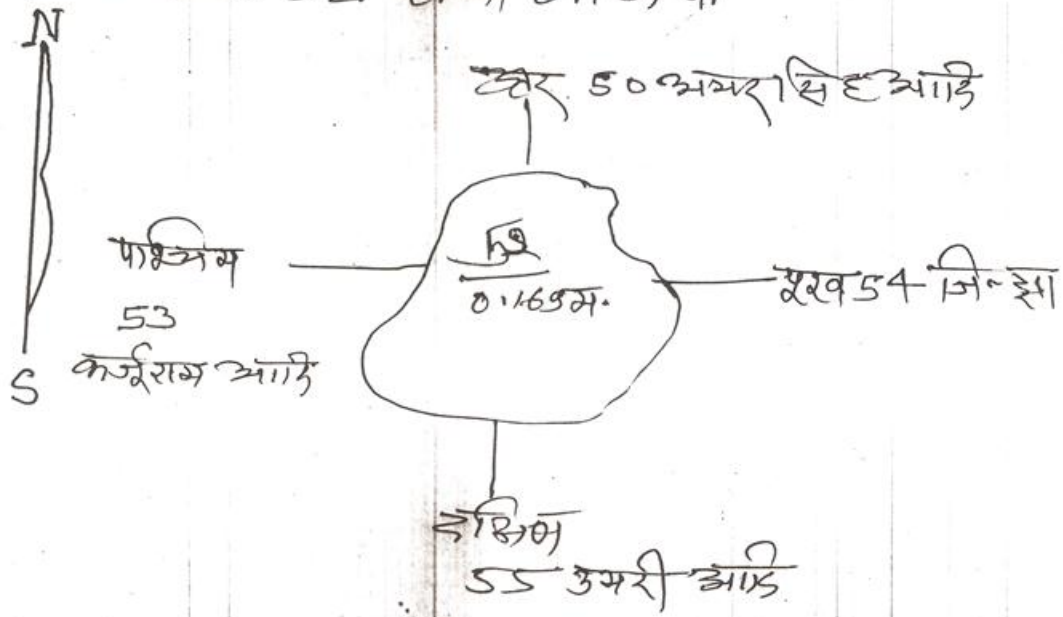 N
उत्तर 50 अमरसिंह आदि
पश्चिम
53
कर्जूराम आदि
52
0.169 म.
पूरब 54
S
दक्षिण
55 उमरी आदि